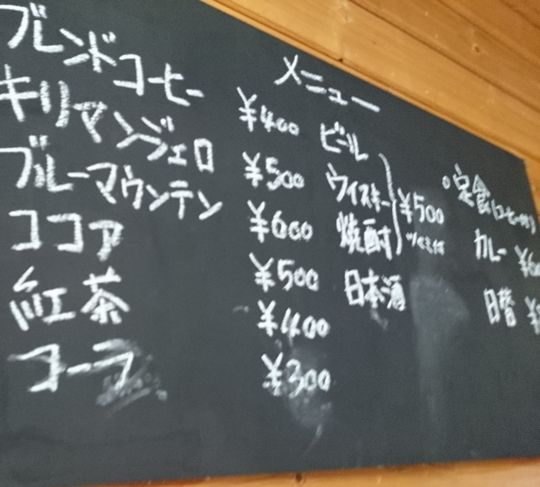 メニュー
ブレンドコーヒー ¥400
キリマンジェロ ¥500
ブルーマウンテン ¥600
ココア ¥500
紅茶 ¥400
コーラ ¥300
ビール
ウイスキー ¥500
焼酎
日本酒
定食
カレー
日替